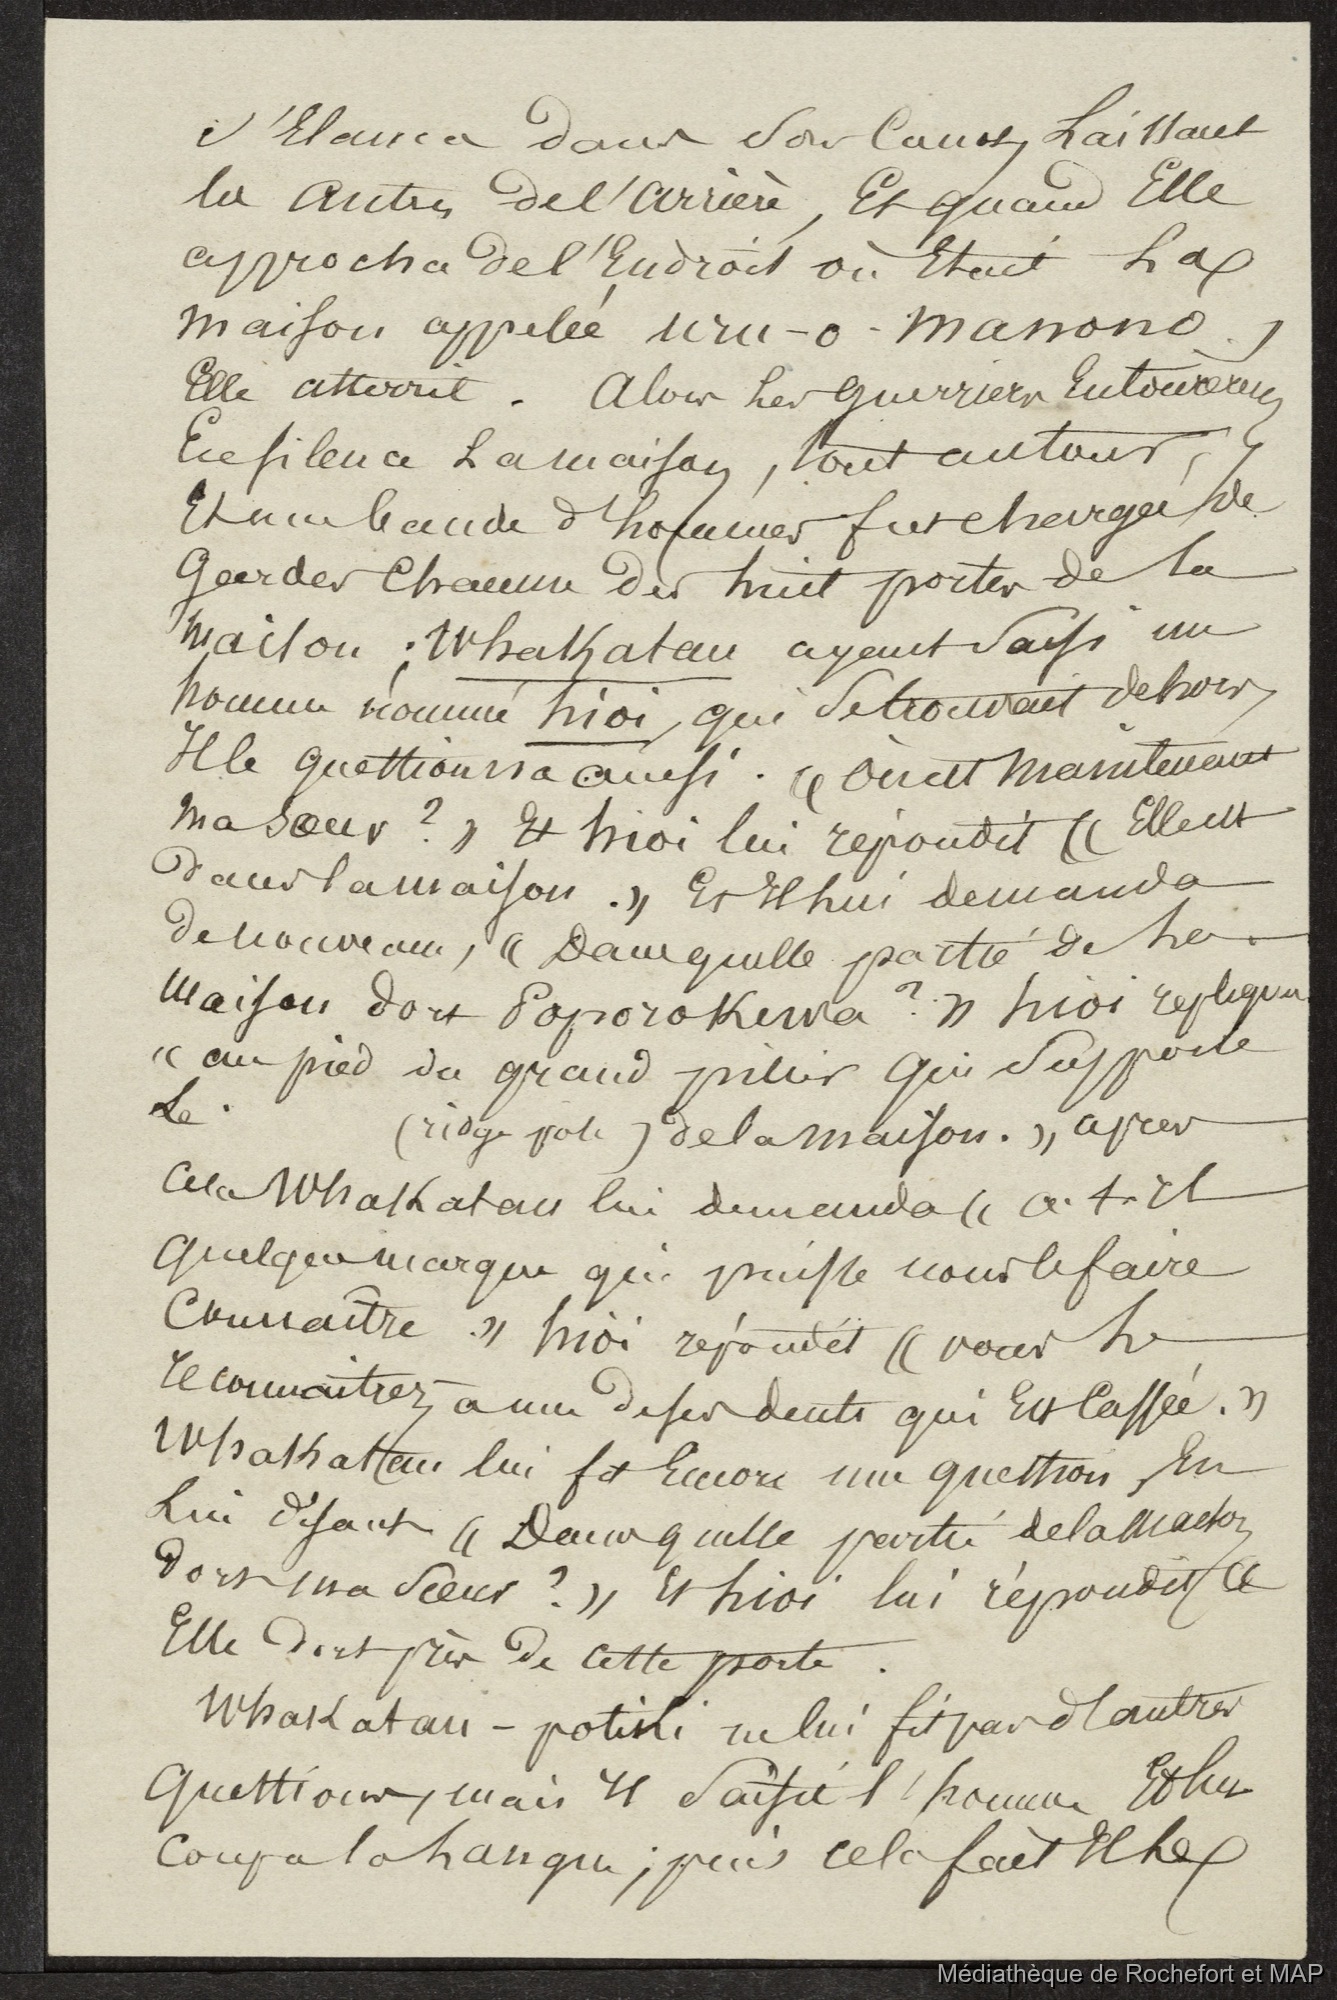 s'Elança dans son Canot, Laissant
les autres de l'arrière, Et quand Elle
approcha de l'Endroit où Etait La
maison appelée uru-o-manono,
Elle atterrit. Alors Les guerriers Entourèrent
En silence La maison, tout autour,
Et une bande d'hommes fut chargée de
garder chacune des huit portes de la
maison ; Whakatau ayant saisi un
homme nommé hioi, qui se trouvait dehors,
Il le questionna ainsi. « où est maintenant
ma sœur ? » Et hioi lui répondit « Elle est
dans la maison. » Et Il lui demanda
de nouveau, « Dans quelle partie de la
maison dort Poporokewa ? » hioi repliqua
« au pied du grand pilier qui supporte
Le (ridge pole) de la maison. », après
cela Whakatau lui demanda « a-t-il
quelque marque qui puisse nous le faire
Connaître » hioi répondit « vous le
reconnaitrez a une de ses dents qui Est Cassée. »
Whakatau lui fit Encore une question, En
Lui disant « Dans quelle partie de la maison
dort ma sœur ? » Et hioi lui répondit «
Elle dort près de cette porte.
Whakatau - potiki ne lui fit pas d'autres
questions, mais Il saisit l'homme Et lui
coupa la Langue ; puis cela fait Il le
Médiathèque de Rochefort et MAP